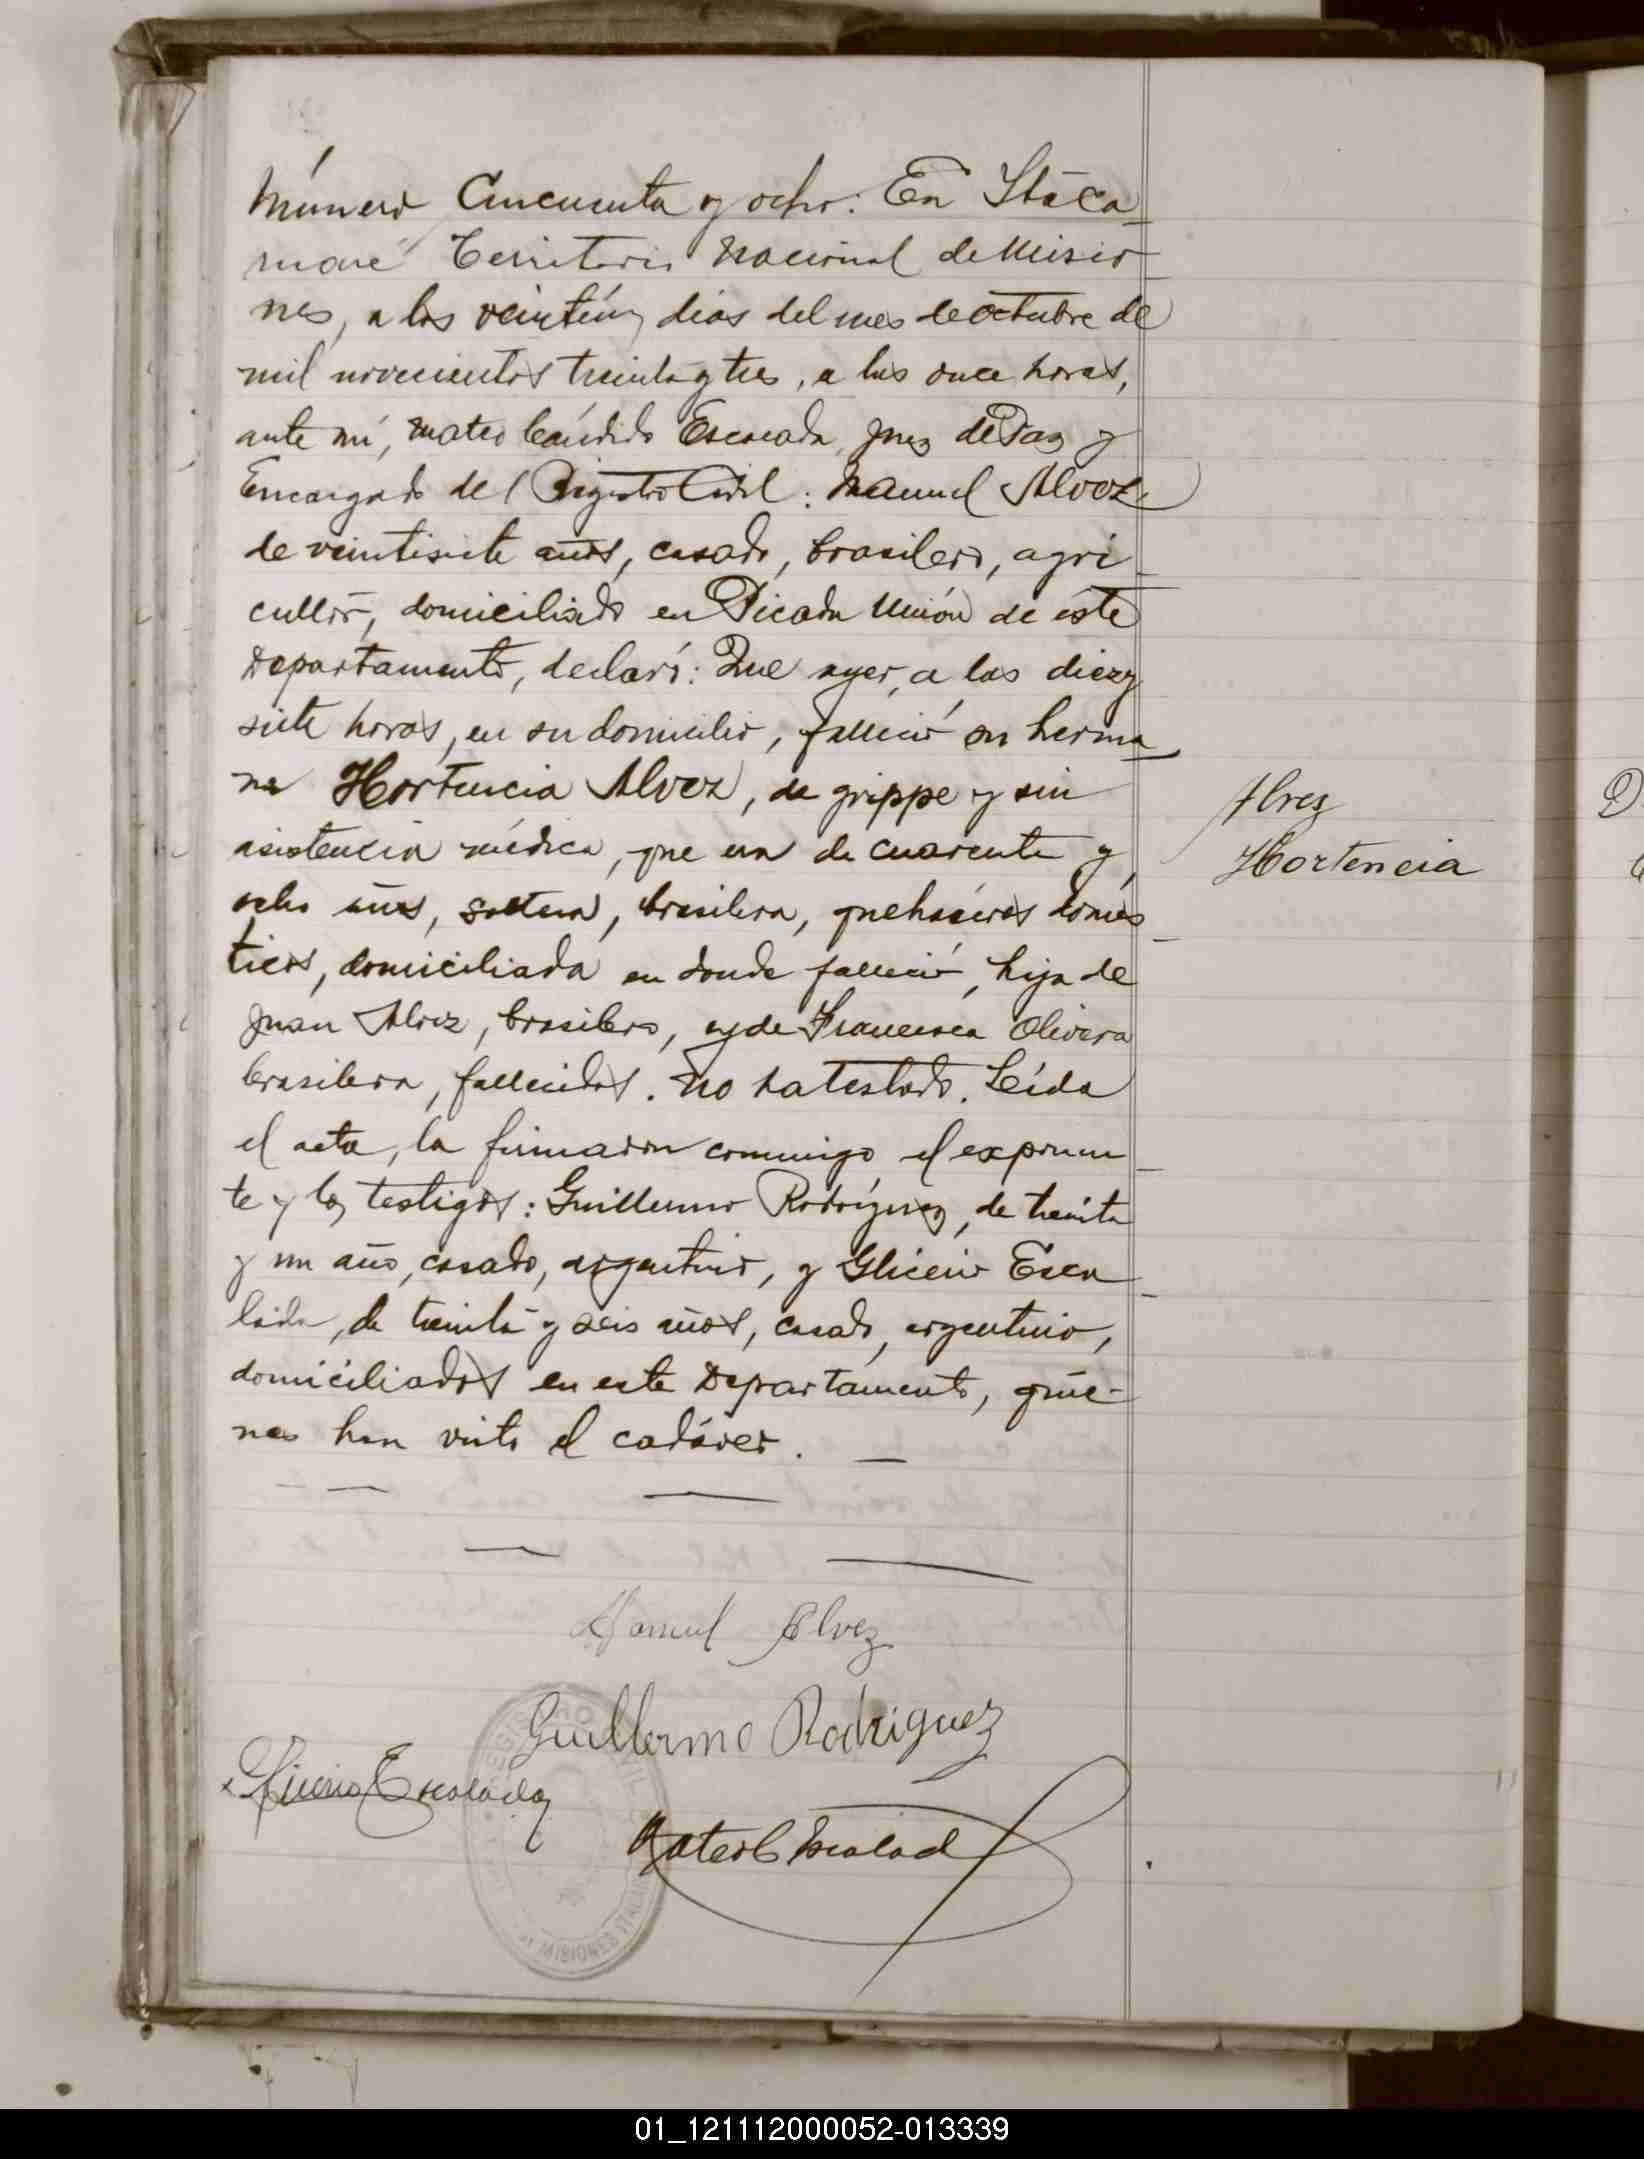 Número Cincuenta y ocho: En Itaca-
ruaré Territorio Nacional de Misio-
nes, a los veintiún dias del mes de octubre de
mil novecientos treinta y tres, a las once horas,
ante mí, Mateo Cándido Escalada, Juez de Paz y
Encargado del Registro Civil: Manuel Alvez
de veintisiete años, casado, brasilero, agri-
cultor, domiciliado en Picada Unión de este
Departamento, declaró: Que ayer, a las diez y
siete horas, en su domicilio, falleció su herma-
na Hortencia Alvez, de grippe y sin
asistencia médica, que era de cuarenta y
ocho años, soltera, brasilera, quehaceres domés-
ticos, domiciliada en donde falleció, hija de
Juan Alvez, brasilero, y de Francisca Olivera
brasilera, fallecidos. No ha testado. Leída
el acta, la firmaron conmigo el exponen-
te y los testigos: Guillermo Rodríguez, de treinta
y un año, casado, argentino, y Glicerio Esca-
lada, de treinta y seis años, casado, argentino,
domiciliados en este Departamento, quie-
nes han visto el cadáver. —
Alvez
Hortencia
Manuel Alvez
Guillermo Rodriguez
Glicerio Escalada
Mateo C Escalad
REGISTRO CIVIL
MISIONES
01_121112000052-013339